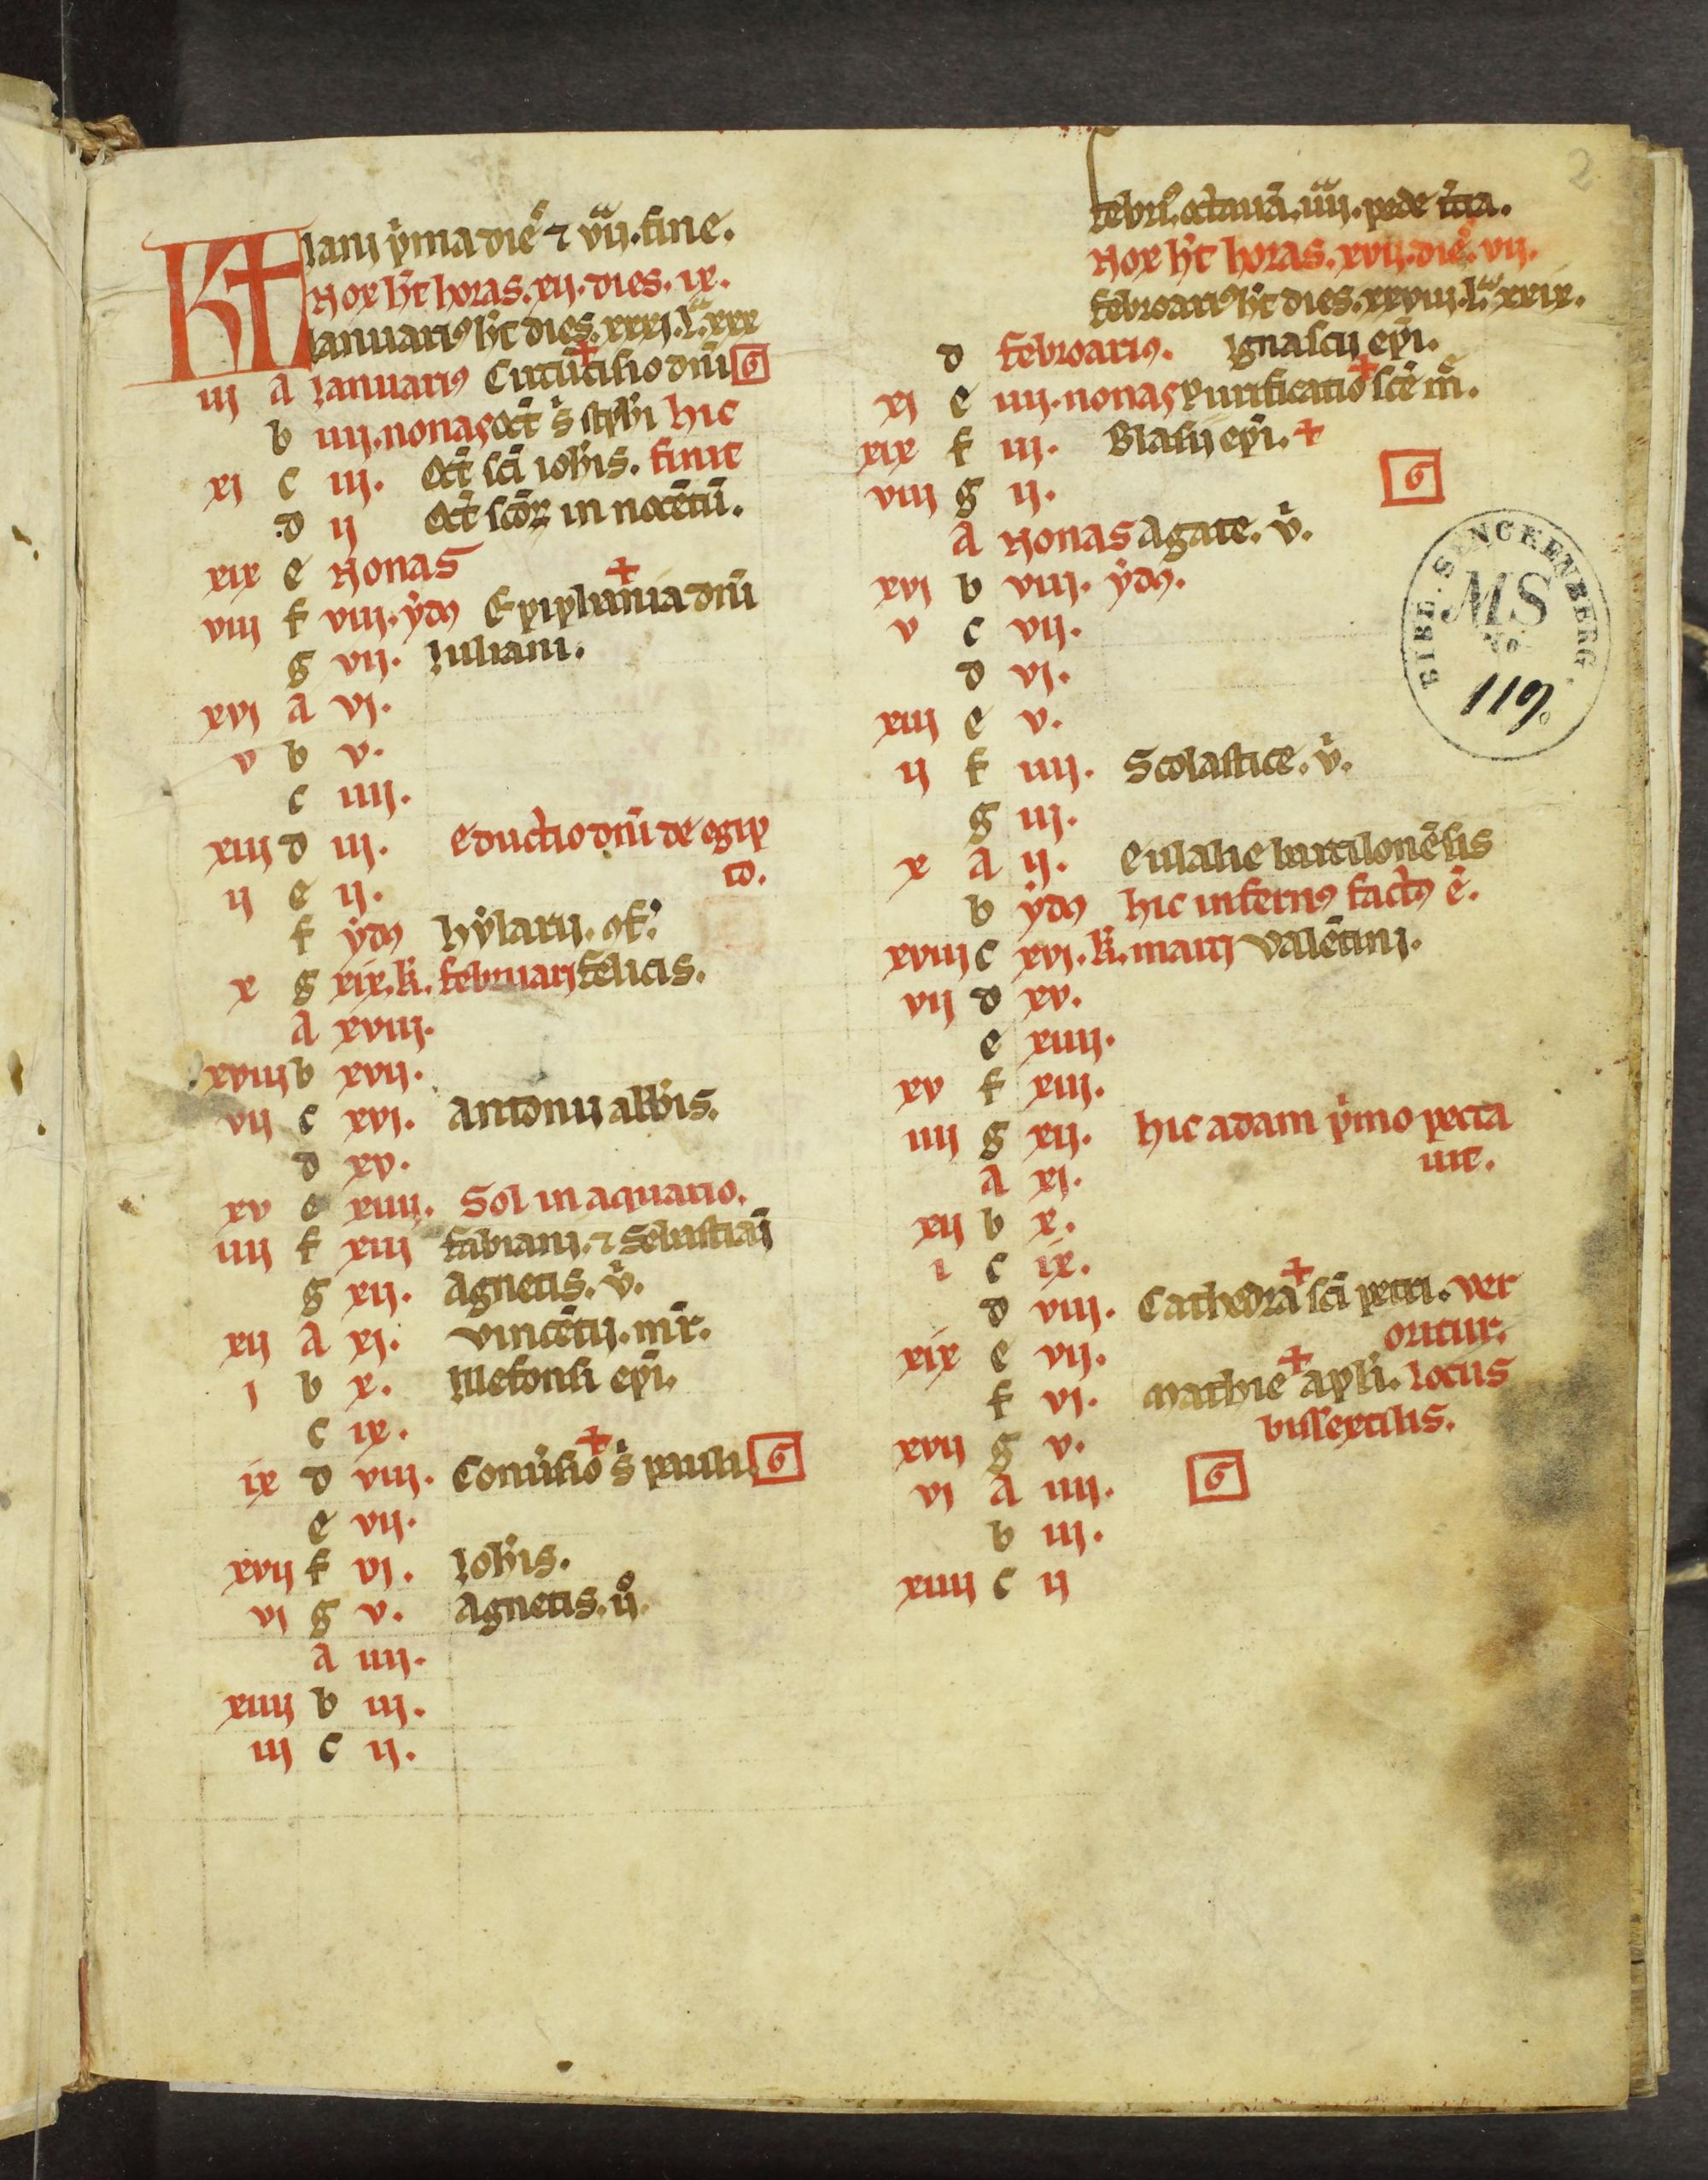 2
KL
Ianį p̍ma dieʒ̄ ⁊ vıja. fine.
Nox h̄t horas. xvj. dies. ıx.
Ianuariꝰ h̄t dies. xxxj. lª. xxx
iij A Ianuariꝰ Circūcisio dnī G
b iiij. nonas oct̄ s̄ steph̄i hic
xj c iij. Oct̄ scī ioh̄is. finit
d ij Oct̄ scōꝝ in nocētū.
xix e Nonas
viij f viij. ẏdꝰ Epiphania dnī
g vij. Iuliani.
xvj A vj.
v b v.
c iiij.
xiij d iij. eductio dnī de egip
to.
ij e ij.
f ẏdꝰ hẏlarij. ꝯf.
x g xix. k̄. februarj felicis.
A xviij.
xviij b xvij.
vij c xvj. antonij abb̄is.
d xv.
xv e xiiij. Sol in aquario.
iiij f xiij fabianj. ⁊ Sebastiaī
g xij. Agnetis. v̄.
xij A xj. vincētij. mr̄.
j b x. Ildefonsi epī.
c ix.
ix d viij. Conūsio s̄ pauli. G
e vij.
xvij f vj. Ioh̄is.
vj g v. Agnetis. ij°.
A iiij.
xiiij b iij.
iij c ij.
febrꝰ. octauā. iiija. pede t̄cia.
Nox h̄t horas. xvij. dieʒ̄. vij.
febroariꝰ h̄t dies. xxviij. lª. xxix.
d febroariꝰ. Ignascij epī.
xj e iiij. nonas purificatio scē m̄.
xix f iij. Blasij epī.
viij g ij. G
A Nonas Agate. v̄.
xvj b viij. ẏdꝰ.
v c vij.
d vj.
xiij e v.
ij f iiij. Scolastice. v̄.
g iij.
x A ij. eulalie barcilonēsis
b ẏdꝰ hic infernꝰ factꝰ ē.
xviij c xvj. k̄. marcj valētinj.
vij d xv.
e xiiij.
xv f xiij.
iiij g xij. hic adam p̍mo pecca
uit.
A xj.
xij b x.
i c ix.
d viij. Cathedra scī petri. ver
oritur.
xix e vij.
f vj. Mathie apli. Locus
bissextilis.
xvij g v.
vj A iiij. G
b iij.
xiiij c ij
BIBL. SENCKENBERG.
MS
No.
119.